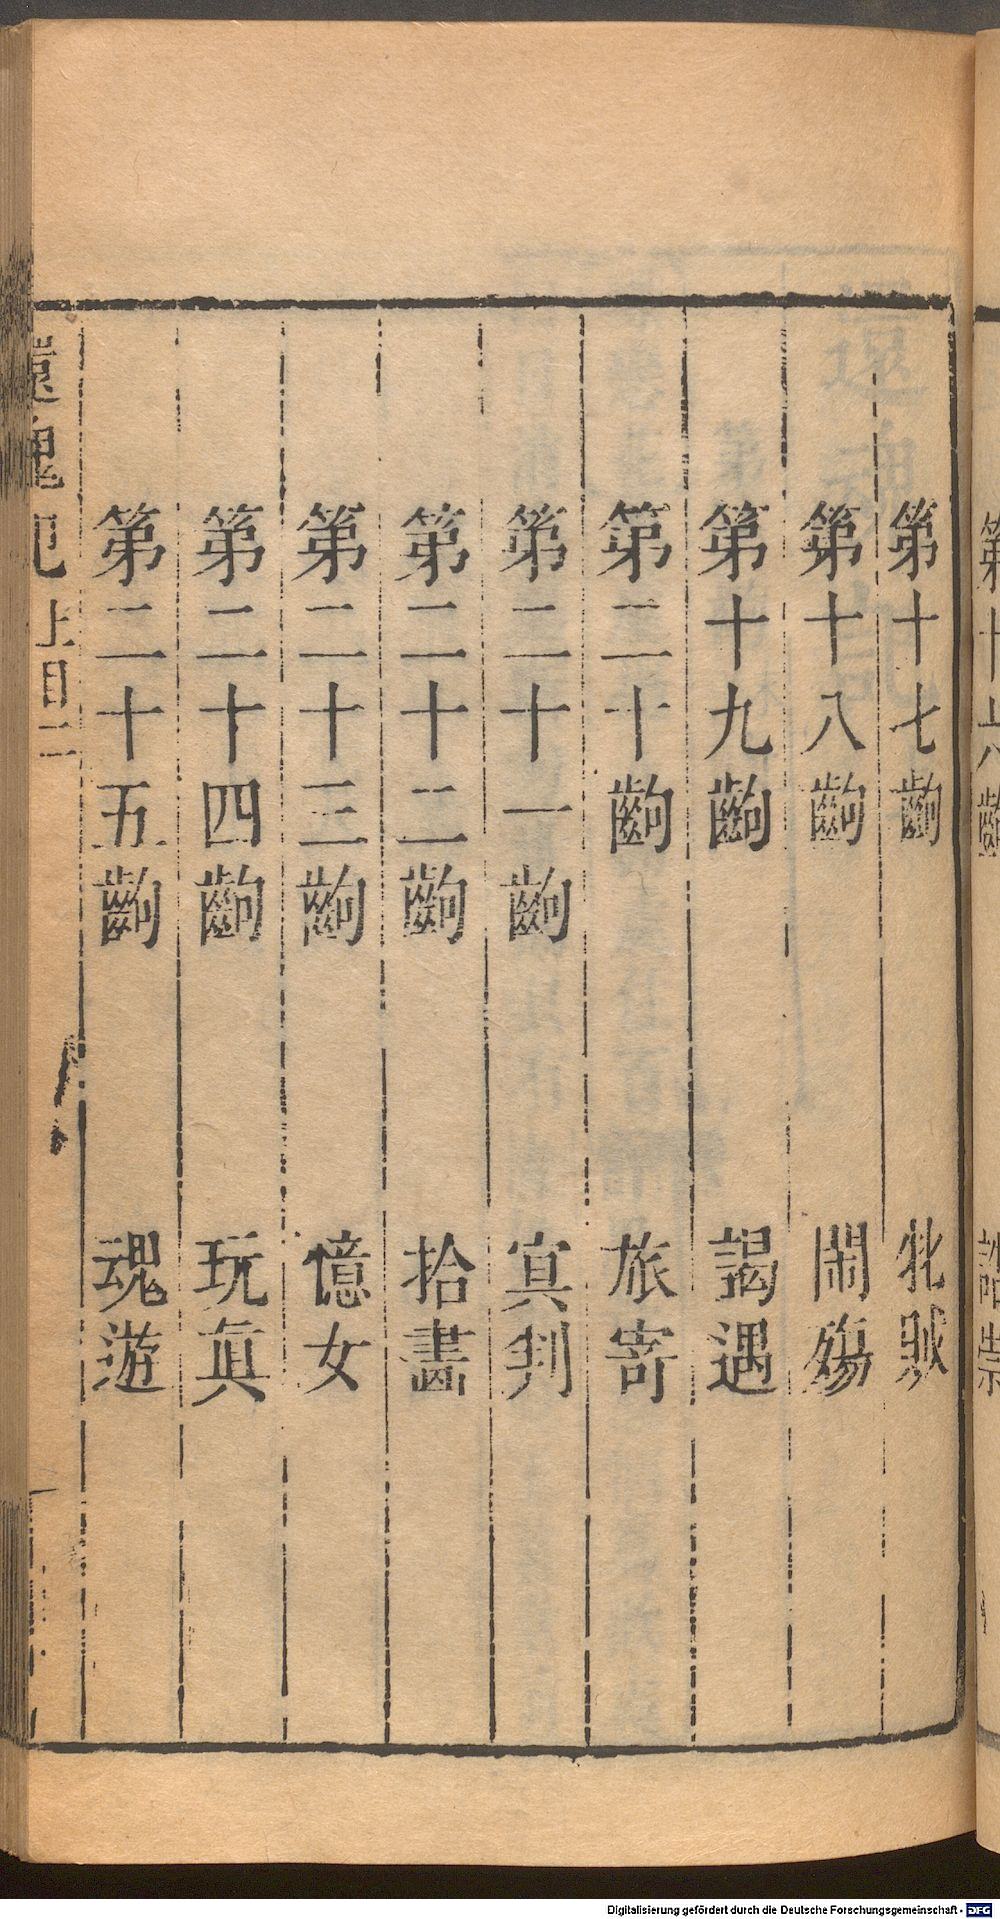 第十六齣
第十七齣 牝賊
第十八齣 閙殤
第十九齣 謁遇
第二十齣 旅寄
第二十一齣 㝠判
第二十二齣 拾畵
第二十三齣 憶女
第二十四齣 玩眞
第二十五齣 魂遊
還魂記 上目二
Digitalisierung gefördert durch die Deutsche Forschungsgemeinschaft - DFG